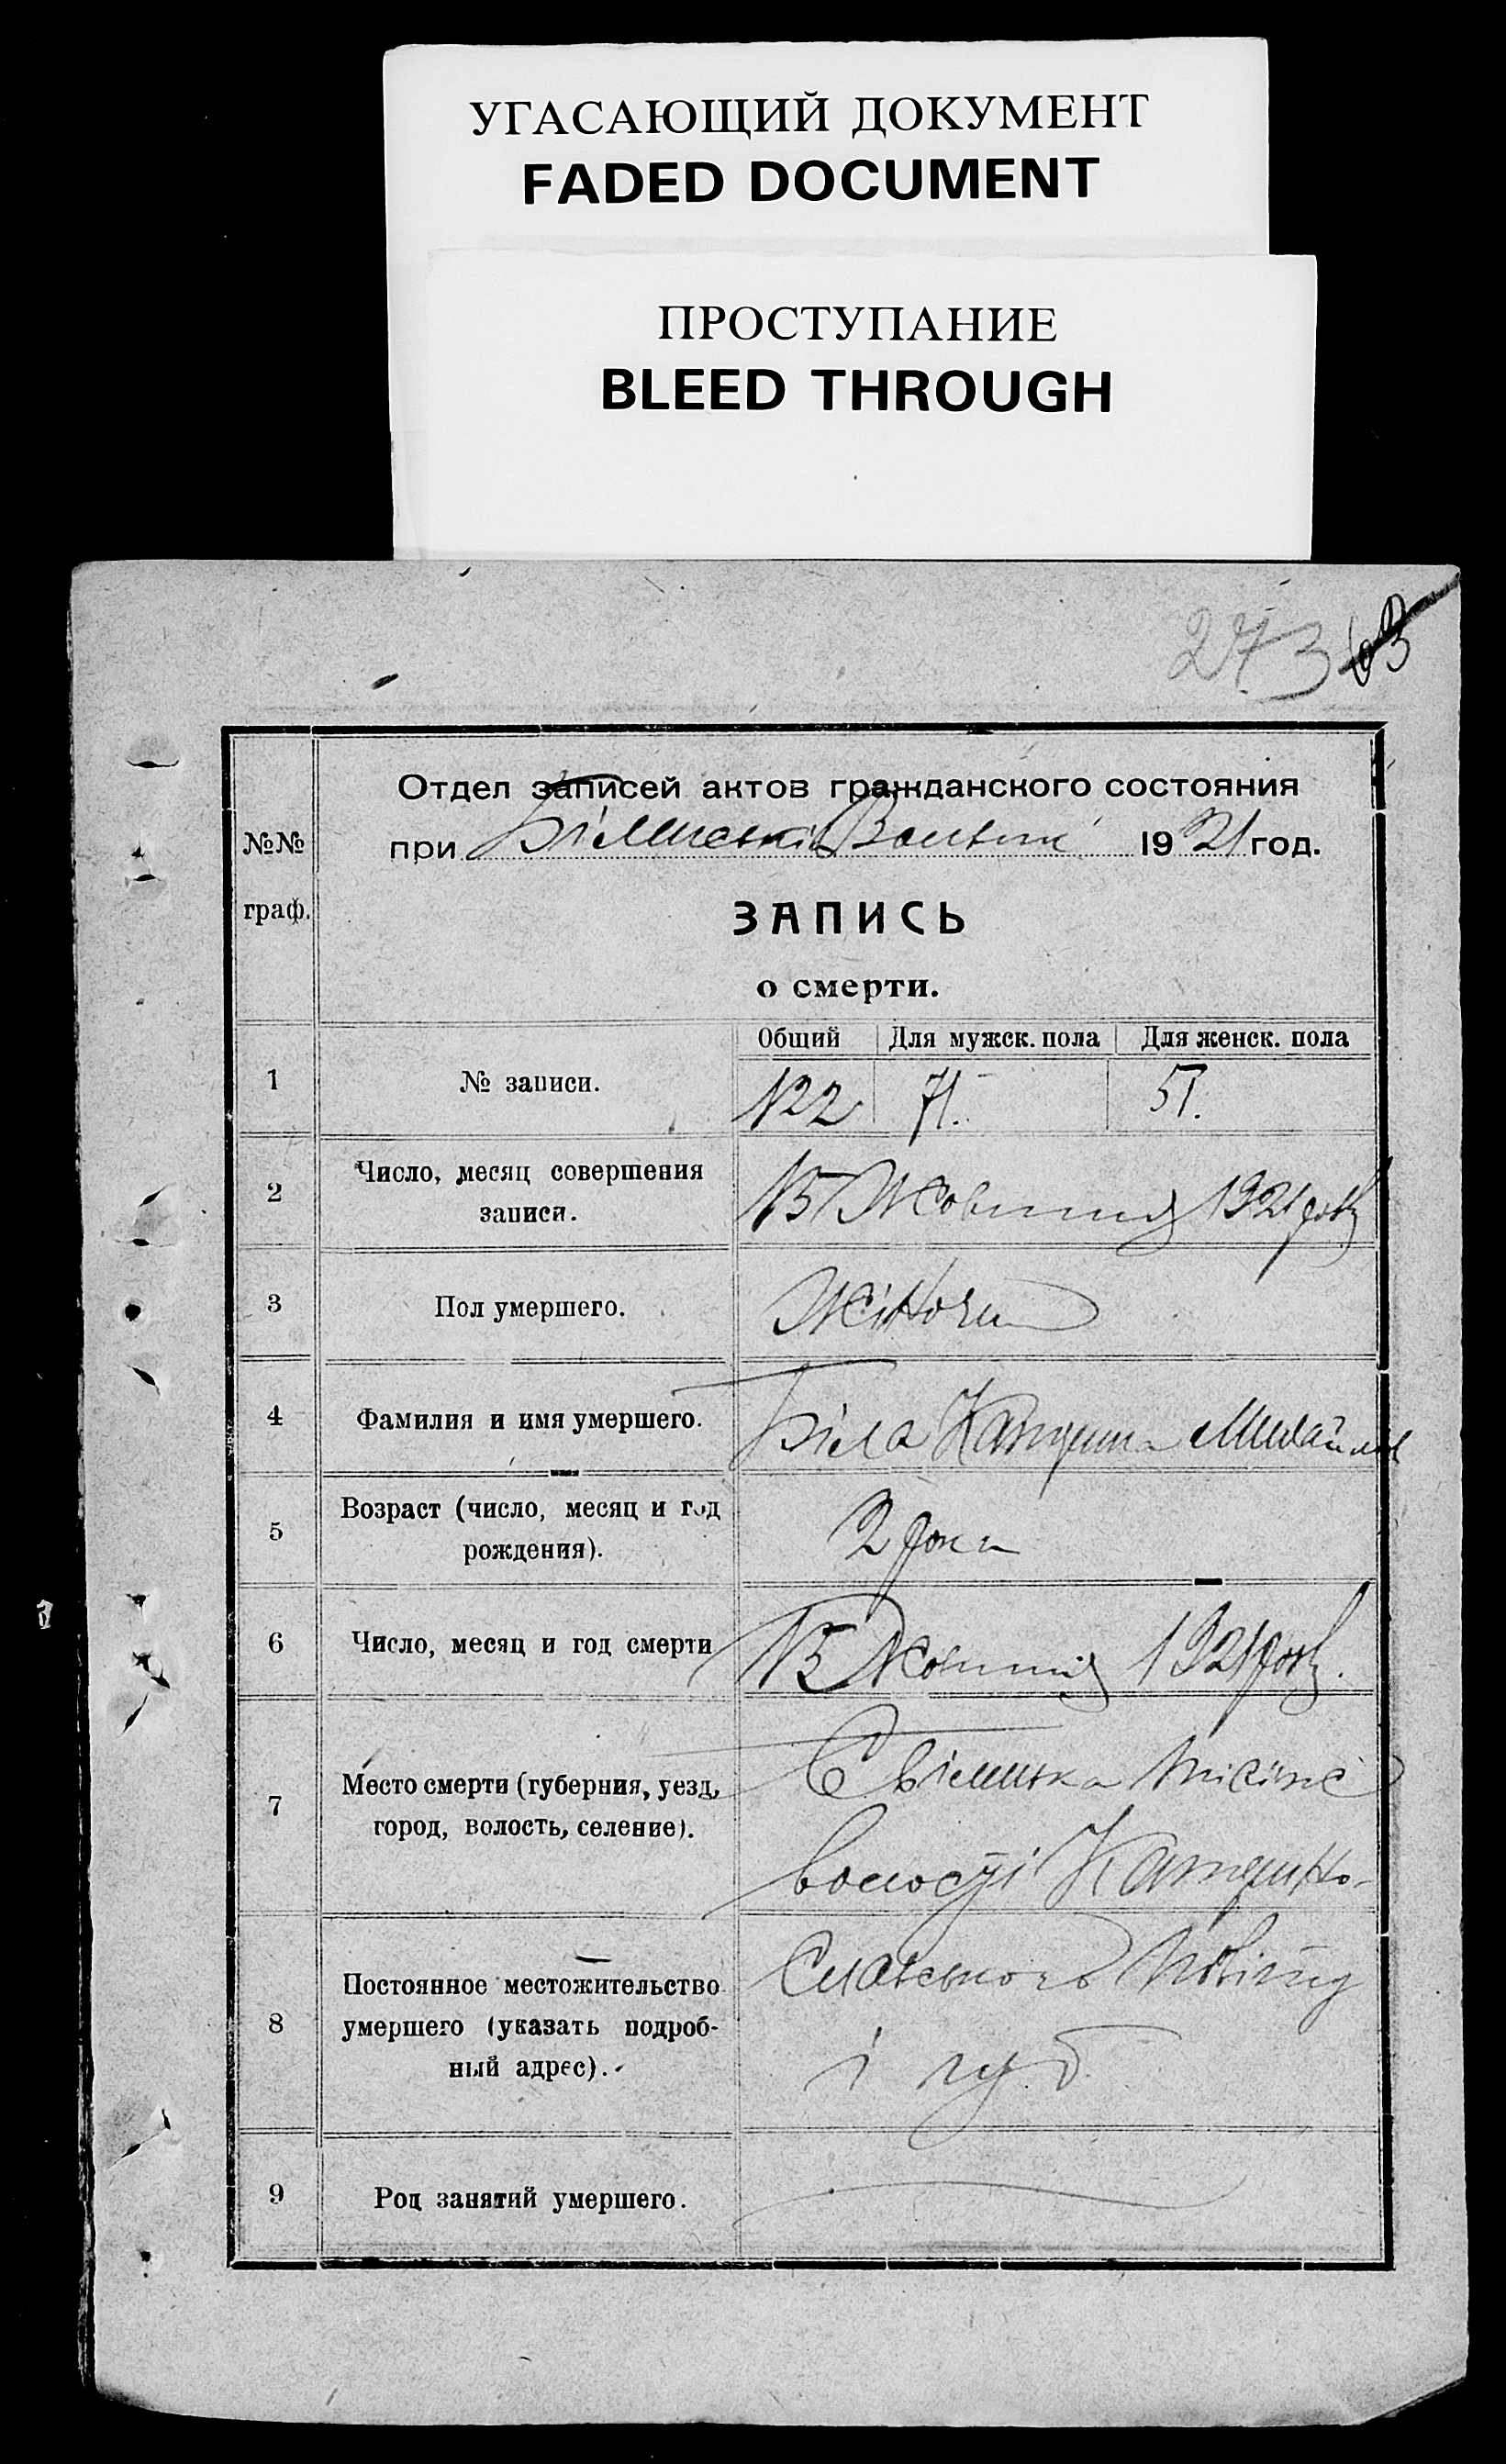 УГАСАЮЩИЙ ДОКУМЕНТ
FADED DOCUMENT
ПРОСТУПАНИЕ
BLEED THROUGH
273 63
Отдел записей актов гражданского состояния
№№ при Волвик 1921 год.
граф.
ЗАПИСЬ
о смерти.
Общий Для мужск. пола Для женск. пола
1 № записи. 122 71. 51.
2 Число, месяц совершения
записи. 15 Жовтня 1921 року
3 Пол умершего. Жіночи
4 Фамилия и имя умершего. Біла Катерина Михайлов
5 Возраст (число, месяц и год
рождения). 2 роки
6 Число, месяц и год смерти 15 Жовтня 1921 року.
7 Место смерти (губерния, уезд,
город, волость, селение).
волості Катерино-
8 Постоянное местожительство
умершего (указать подроб-
ный адрес). Славського Повіту
і губ.
9 Род занятий умершего.